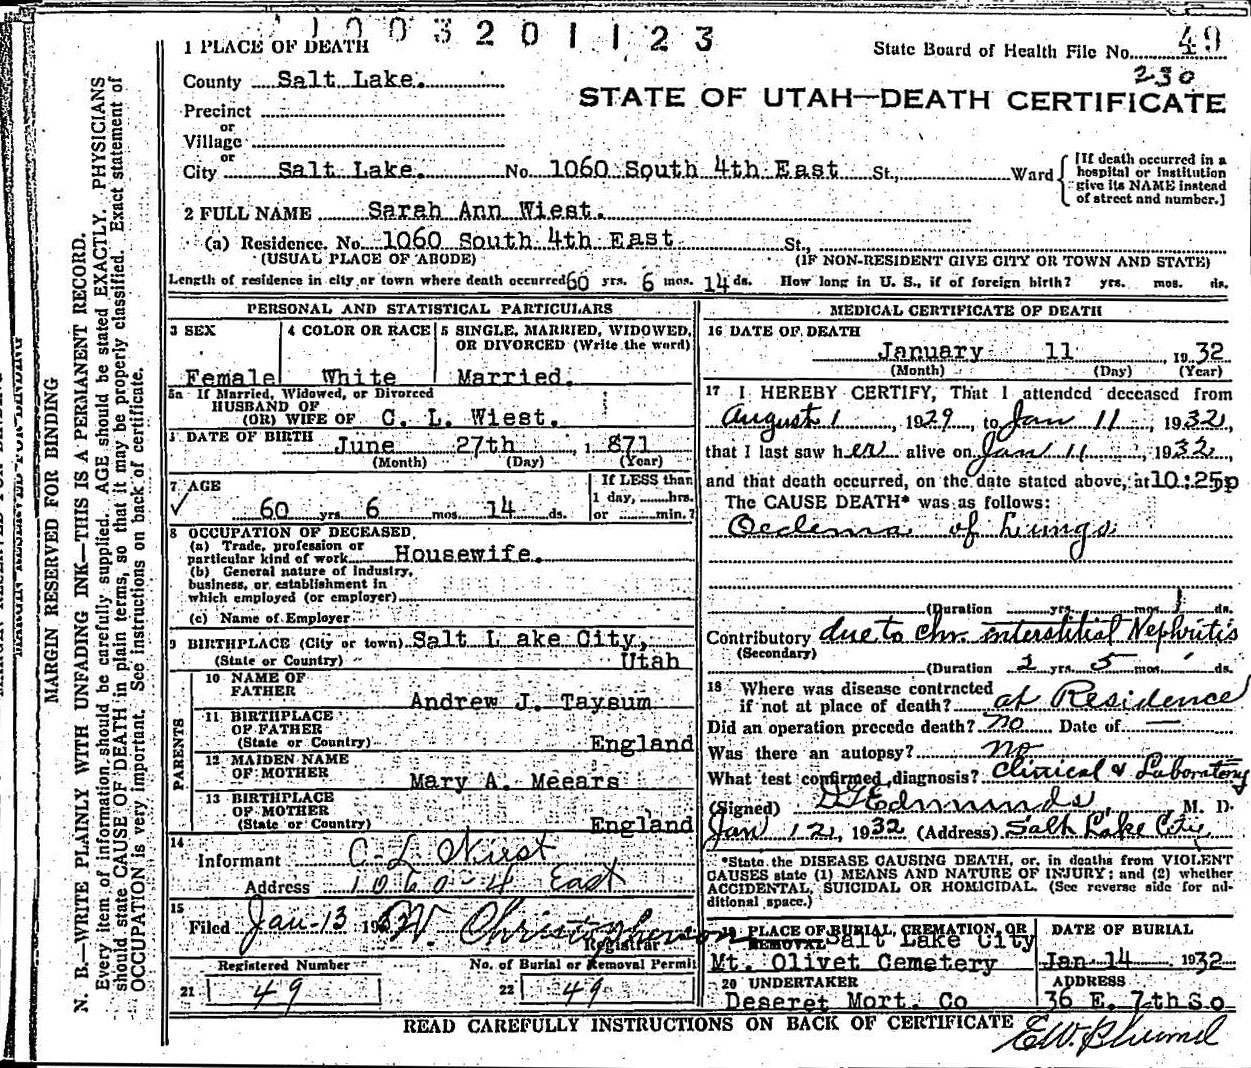 1003201123
1 PLACE OF DEATH
State Board of Health File No. 49
230
County Salt Lake.
STATE OF UTAH—DEATH CERTIFICATE
Precinct
or
Village
or
City Salt Lake. No. 1060 South 4th East St., Ward
[If death occurred in a hospital or institution give its NAME instead of street and number.]
2 FULL NAME Sarah Ann Wiest.
(a) Residence. No. 1060 South 4th East St.,
(USUAL PLACE OF ABODE) (IF NON-RESIDENT GIVE CITY OR TOWN AND STATE)
Length of residence in city or town where death occurred 60 yrs. 6 mos. 14 ds. How long in U. S., if of foreign birth? yrs. mos. ds.
PERSONAL AND STATISTICAL PARTICULARS
3 SEX
Female
4 COLOR OR RACE
White
5 SINGLE, MARRIED, WIDOWED, OR DIVORCED (Write the word)
Married.
5a If Married, Widowed, or Divorced
HUSBAND OF
(OR) WIFE OF C. L. Wiest.
DATE OF BIRTH June 27th, 1871
(Month) (Day) (Year)
7 AGE
60 yrs. 6 mos. 14 ds.
If LESS than
1 day, hrs.
or min.?
8 OCCUPATION OF DECEASED
(a) Trade, profession or
particular kind of work Housewife.
(b) General nature of Industry,
business, or establishment in
which employed (or employer)
(c) Name of Employer
9 BIRTHPLACE (City or town) Salt Lake City,
(State or Country) Utah
PARENTS
10 NAME OF
FATHER
Andrew J. Taysum
11 BIRTHPLACE
OF FATHER
(State or Country) England
12 MAIDEN NAME
OF MOTHER
Mary A. Meears
13 BIRTHPLACE
OF MOTHER
(State or Country) England
14
Informant C L Wiest
Address 1060-4 East
15
Filed Jan-13 1932 W. Christopherson
Registrar
Registered Number
21 49
No. of Burial or Removal Permit
22 49
MEDICAL CERTIFICATE OF DEATH
16 DATE OF DEATH
January 11, 1932
(Month) (Day) (Year)
17 I HEREBY CERTIFY, That I attended deceased from
August 1, 1929, to Jan 11, 1932,
that I last saw her alive on Jan 11, 1932,
and that death occurred, on the date stated above, at 10:25p
The CAUSE DEATH* was as follows:
Oedema of Lungs
(Duration yrs. mos. 1 ds.
Contributory due to Chr. interstitial Nephritis
(Secondary)
(Duration 2 yrs. 5 mos. ds.
18 Where was disease contracted
if not at place of death? at Residence
Did an operation precede death? no Date of —
Was there an autopsy? no
What test confirmed diagnosis? Clinical & Laboratory
(Signed) D G Edmunds, M. D.
Jan 12, 1932 (Address) Salt Lake City
*State the DISEASE CAUSING DEATH, or, in deaths from VIOLENT
CAUSES state (1) MEANS AND NATURE OF INJURY; and (2) whether
ACCIDENTAL, SUICIDAL OR HOMICIDAL. (See reverse side for additional space.)
19 PLACE OF BURIAL, CREMATION, OR
REMOVAL Salt Lake City
Mt. Olivet Cemetery
DATE OF BURIAL
Jan 14 1932
20 UNDERTAKER
Deseret Mort. Co
ADDRESS
36 E. 7th So
READ CAREFULLY INSTRUCTIONS ON BACK OF CERTIFICATE
MARGIN RESERVED FOR BINDING
N. B.—WRITE PLAINLY WITH UNFADING INK—THIS IS A PERMANENT RECORD.
Every item of information should be carefully supplied. AGE should be stated EXACTLY. PHYSICIANS
should state CAUSE OF DEATH in plain terms, so that it may be properly classified. Exact statement of
OCCUPATION is very important. See instructions on back of certificate.